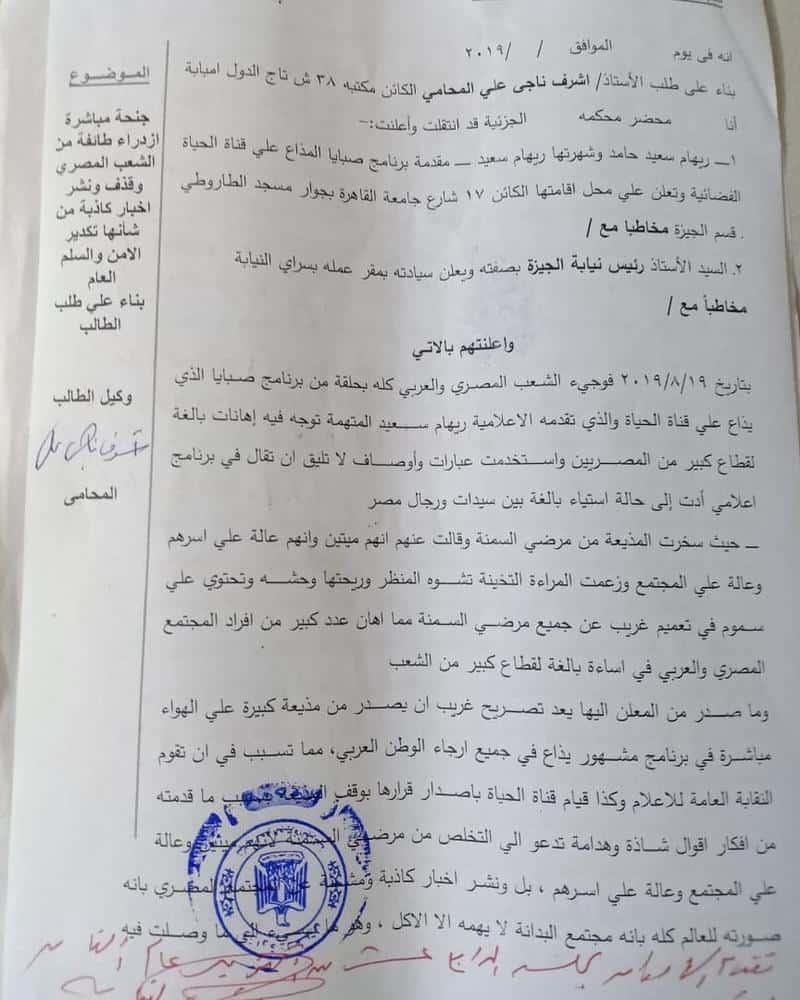 انه فى يوم الموافق / / ٢٠١٩
بناء على طلب الأستاذ/ اشرف ناجى علي المحامي الكائن مكتبه ٣٨ ش تاج الدول امبابة
أنا محضر محكمه الجزئية قد انتقلت وأعلنت:-
١ــ ريهام سعيد حامد وشهرتها ريهام سعيد ــ مقدمة برنامج صبايا المذاع علي قناة الحياة
الفضائية وتعلن علي محل اقامتها الكائن ١٧ شارع جامعة القاهرة بجوار مسجد الطاروطي
. قسم الجيزة مخاطبا مع /
٢. السيد الأستاذ رئيس نيابة الجيزة بصفته ويعلن سيادته بمقر عمله بسراي النيابة
مخاطباً مع /
واعلنتهم بالاتي
بتاريخ ٢٠١٩/٨/١٩ فوجيء الشعب المصري والعربي كله بحلقة من برنامج صبايا الذي
يذاع علي قناة الحياة والذي تقدمه الاعلامية ريهام سعيد المتهمة توجه فيه إهانات بالغة
لقطاع كبير من المصريين واستخدمت عبارات وأوصاف لا تليق ان تقال في برنامج
اعلامي أدت إلى حالة استياء بالغة بين سيدات ورجال مصر
ــ حيث سخرت المذيعة من مرضي السمنة وقالت عنهم انهم ميتين وانهم عالة علي اسرهم
وعالة علي المجتمع وزعمت المراءة التخينة تشوه المنظر وريحتها وحشه وتحتوي علي
سموم في تعميم غريب عن جميع مرضي السمنة مما اهان عدد كبير من افراد المجتمع
المصري والعربي في اساءة بالغة لقطاع كبير من الشعب
وما صدر من المعلن اليها يعد تصريح غريب ان يصدر من مذيعة كبيرة علي الهواء
مباشرة في برنامج مشهور يذاع في جميع ارجاء الوطن العربي، مما تسبب في ان تقوم
النقابة العامة للاعلام وكذا قيام قناة الحياة باصدار قرارها بوقف ما قدمته
من افكار اقوال شاذة وهدامة تدعو الي التخلص من مرضي السمنة لانهم ميتين وعالة
علي المجتمع وعالة علي اسرهم ، بل ونشر اخبار كاذبة المصري بانه
صورته للعالم كله بانه مجتمع البدانة لا يهمه الا الاكل ، وهو ما وصلت فيه
الموضوع
جنحة مباشرة
ازدراء طائفة من
الشعب المصري
وقذف ونشر
اخبار كاذبة من
شأنها تكدير
الامن والسلم
العام
بناء علي طلب
الطالب
وكيل الطالب
اشرف ناجى علي
المحامى